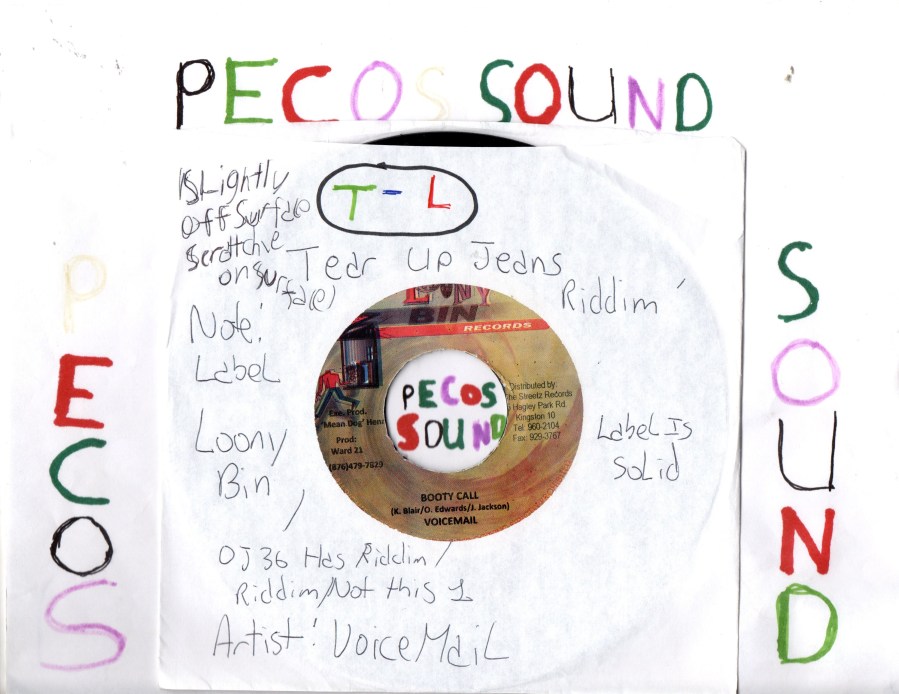 PECOS SOUND
(Slightly
off surface
scratchie
on surface)
T-L
Tear Up Jeans
Riddim'
Note!
Label
Loony
Bin
/
Label Is
Solid
LOONY
BIN
RECORDS
Exe. Prod.
'Mean Dog' Henr
Prod:
Ward 21
(876)479-7823
PECOS
SOUND
Distributed by:
he Streetz Records
Hagley Park Rd.
Kingston 10
Tel: 960-2104
Fax: 929-3767
BOOTY CALL
(K. Blair/O. Edwards/J. Jackson)
VOICEMAIL
OJ36 Has Riddim/
Riddim/Not this 1
Artist! VoiceMaiL
PECOS
SOUND